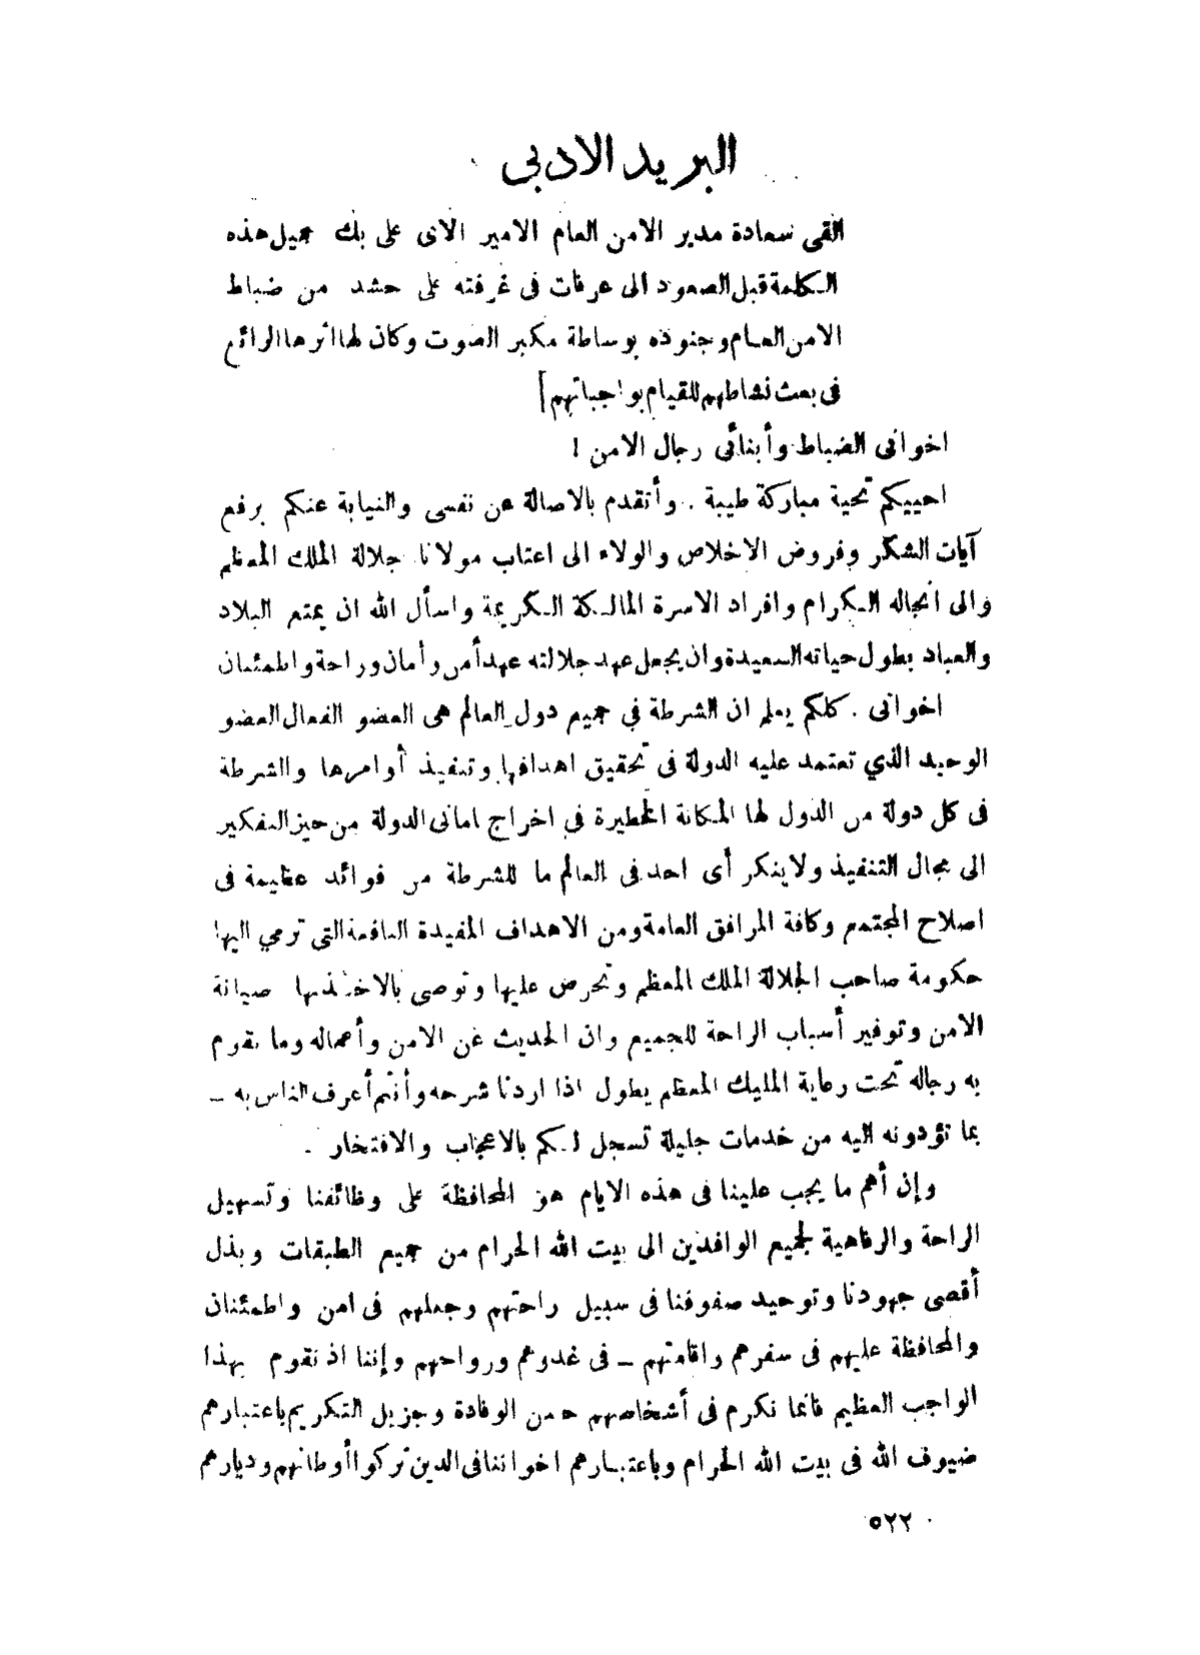 البريد الادبى
القى سعادة مدير الامن العام الامير الاى على بك جميل هذه
الكلمة قبل الصعود الى عرفات فى غرفته على حشد من ضباط
الامن العام وجنوده بوساطة مكبر الصوت وكان لها اثرها الرائع
فى بعث نشاطهم للقيام بواجباتهم]
اخوانى الضباط وأبنائى رجال الامن !
احييكم تحية مباركة طيبة . وأتقدم بالاصالة عن نفسى والنيابة عنكم برفع
آيات الشكر وفروض الاخلاص والولاء الى اعتاب مولانا جلالة الملك المعظم
والى أنجاله الكرام وافراد الاسرة المالكة الكريمة واسأل الله ان يمتع البلاد
والعباد بطول حياته السعيدة وان يجعل عهد جلالته عهد أمن وأمان وراحة واطمئنان
اخوانى . كلكم يعلم ان الشرطة في جميع دول العالم هى العضو الفعال العضو
الوحيد الذي تعتمد عليه الدولة فى تحقيق اهدافها وتنفيذ أوامرها والشرطة
فى كل دولة من الدول لها المكانة الخطيرة في اخراج امانى الدولة من حيز التفكير
الى مجال التنفيذ ولا ينكر أى احد فى العالم ما للشرطة من فوائد عظيمة فى
اصلاح المجتمع وكافة المرافق العامة ومن الاهداف المفيدة النافعة التى ترمي اليها
حكومة صاحب الجلالة الملك المعظم وتحرص عليها وتوصى بالاخذ بها صيانة
الامن وتوفير أسباب الراحة للجميع وان الحديث عن الامن وأعماله وما يقوم
به رجاله تحت رعاية المليك المعظم يطول اذا اردنا شرحه وأنتم أعرف الناس به –
بما تؤدونه اليه من خدمات جليلة تسجل لكم بالاعجاب والافتخار .
وإن أهم ما يجب علينا فى هذه الايام هو المحافظة على وظائفنا وتسهيل
الراحة والرفاهية لجميع الوافدين الى بيت الله الحرام من جميع الطبقات وبذل
أقصى جهودنا وتوحيد صفوفنا فى سبيل راحتهم وجعلهم فى امن واطمئنان
والمحافظة عليهم فى سفرهم واقامتهم – فى غدوهم ورواحهم وإننا اذ نقوم بهذا
الواجب العظيم فانما نكرم فى أشخاصهم حسن الوفادة وجزيل التكريم باعتبارهم
ضيوف الله فى بيت الله الحرام وباعتبارهم اخواننا فى الدين تركوا أوطانهم وديارهم
٥٢٢